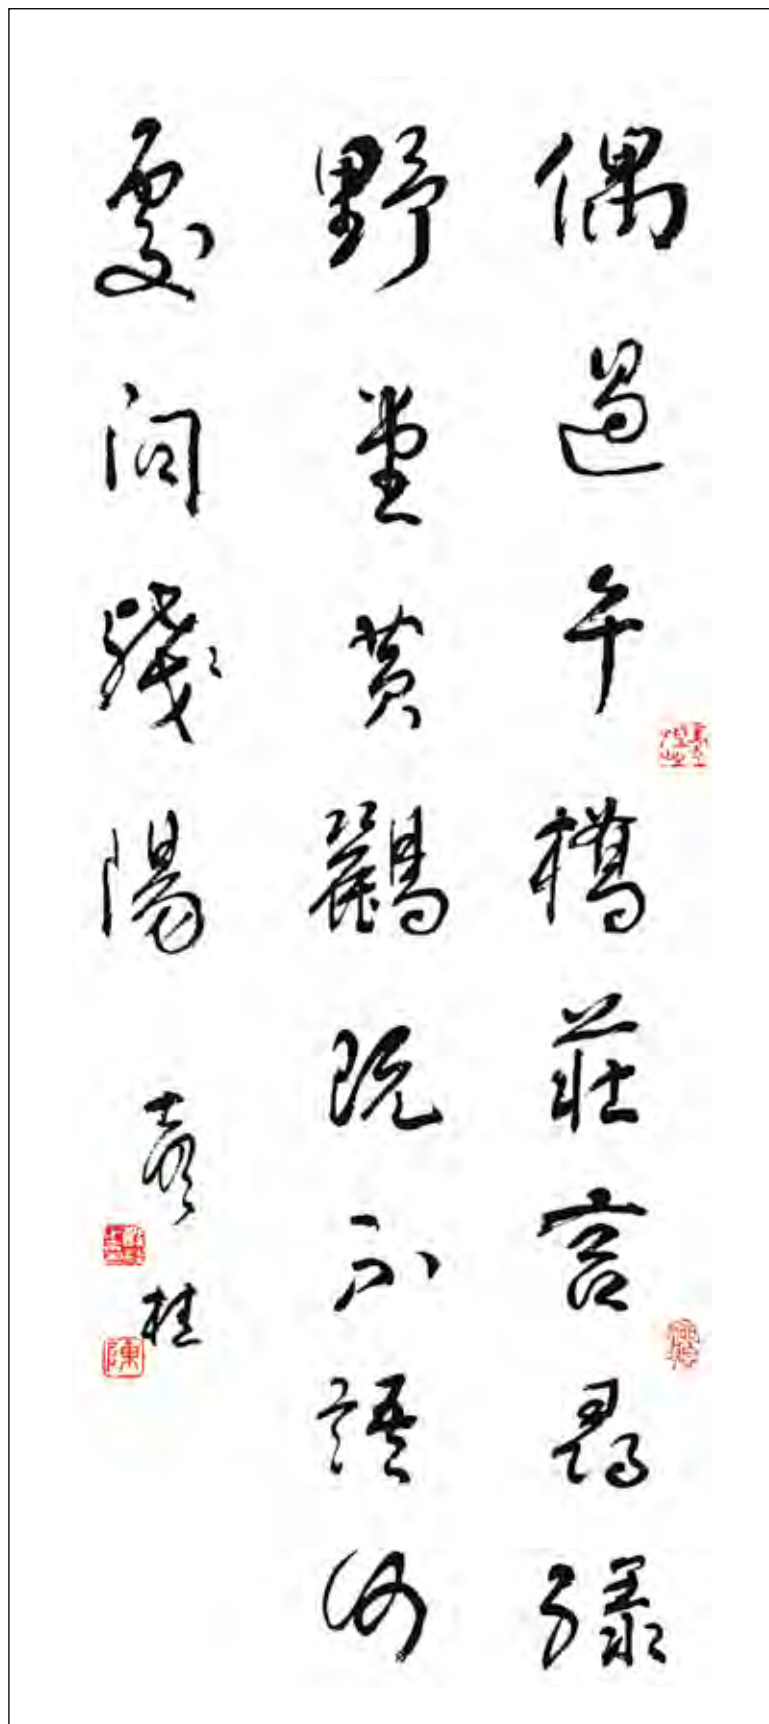 偶過午橋莊言尋綠
野堂黃鸝既不語何
處問殘陽
桂
陳